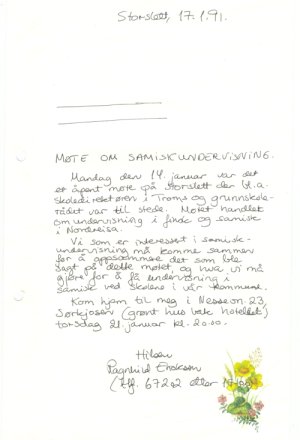 Storslett, 17.1.91.
MØTE OM SAMISKUNDERVISNING.
Mandag den 14. januar var det
et åpent møte på Storslett der bl.a.
skoledirektøren i Troms og grunnskole-
rådet var til stede. Møtet handlet
om undervisning i finsk og samisk
i Nordreisa.
Vi som er interessert i samisk-
undervisning må komme sammen
for å oppsummere det som ble
sagt på dette møtet og hva vi må
gjøre for å få undervisning i
samisk ved skolene i vår kommune.
Kom hjem til meg i Nesseveien 23,
Sørkjosen (grønt hus bak hotellet)
torsdag 21. januar kl. 20.00.
Hilsen
Ragnhild Enoksen
(tlf. 67202 eller